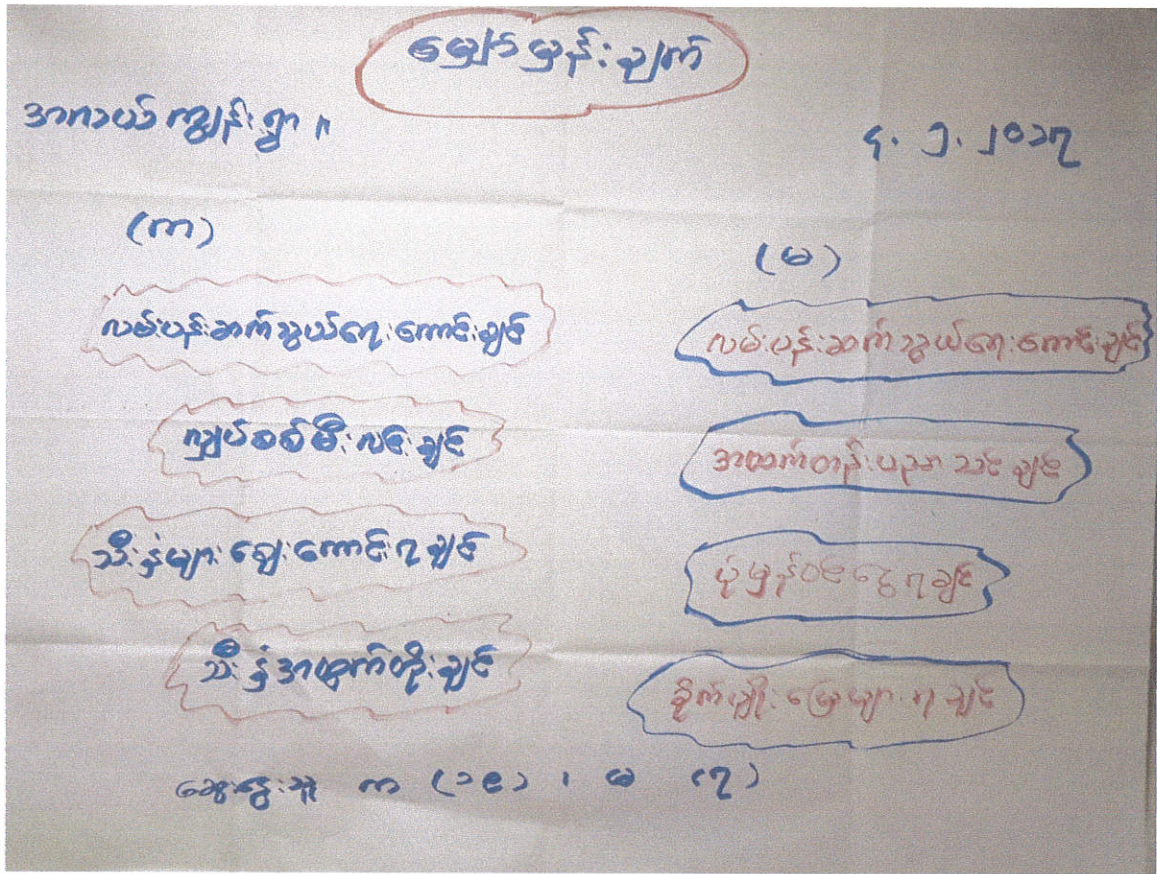 မျှော်မှန်းချက်
အာကာယ်ကျွန်းရွာ။
၄. ၂. ၂၀၁၇
(ကာ)
လမ်းပန်းဆက်သွယ်ရေးကောင်းချင်
လျှပ်စစ်မီးလင်းချင်
သီးနှံများစျေးကောင်းရချင်
သီးနှံအထွက်တိုးချင်
(မ)
လမ်းပန်းဆက်သွယ်ရေးကောင်းချင်
အထက်တန်းပညာသင်ချင်
ပုံမှန်ဝင်ငွေရချင်
စိုက်ပျိုးမြေများရချင်
ဆွေးနွေးသူ ကာ (၁၉) ၊ မ (၇)